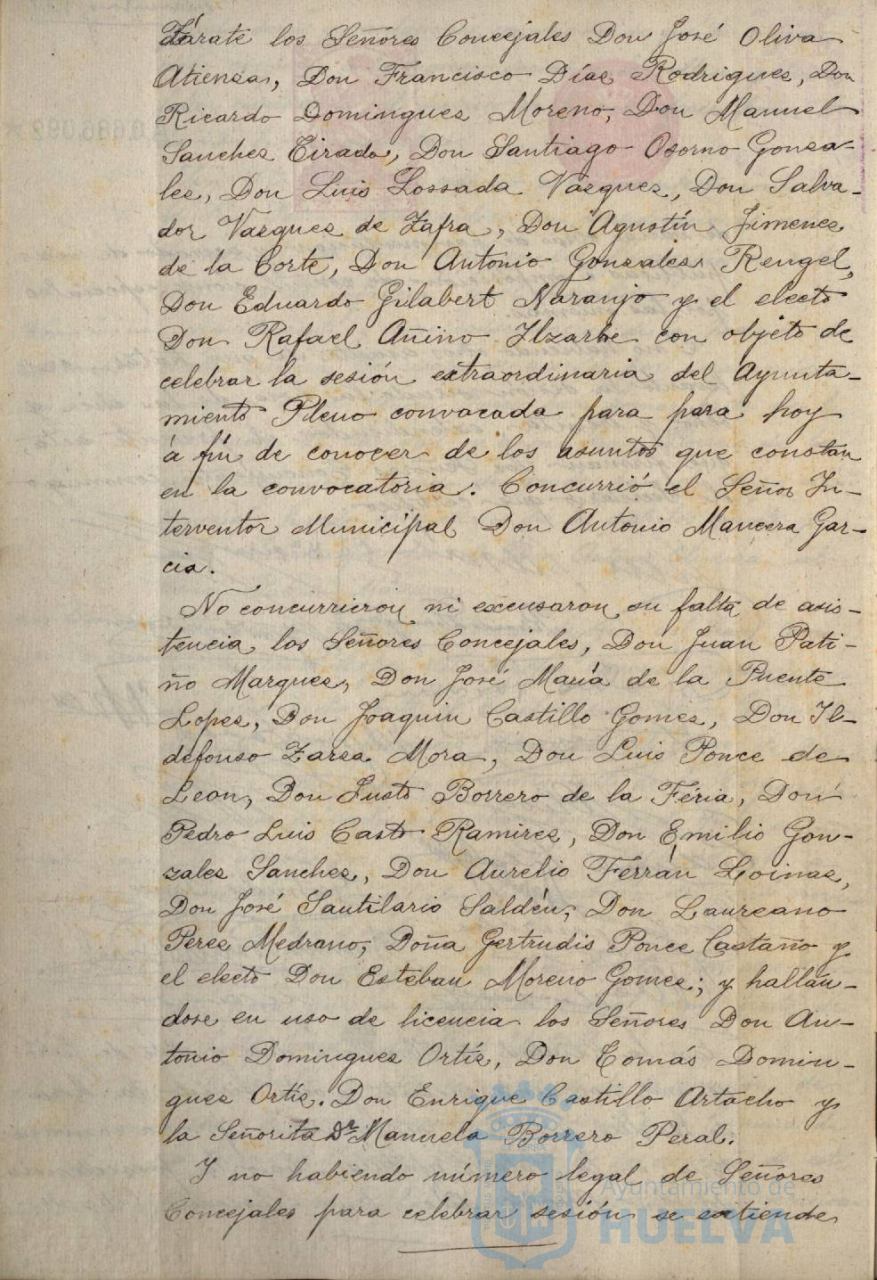 Zárate los Señores Concejales Don José Oliva
Atienza, Don Francisco Días Rodrigues, Don
Ricardo Domingues Moreno, Don Manuel
Sanches Tirado, Don Santiago Osorno Gonza-
les, Don Luis Lossada Vazques, Don Salva-
dor Vazques de Zafra, Don Agustín Jimenes
de la Corte, Don Antonio Gonzales Rengel,
Don Eduardo Gilabert Naranjo y el electo
Don Rafael Añino Ilzarbe con objeto de
celebrar la sesión extraordinaria del Ayunta-
miento Pleno convocada para para hoy
á fin de conocer de los asuntos que constan
en la convocatoria. Concurrió el Señor In-
terventor Municipal Don Antonio Mancera Gar-
cia.
No concurrieron ni excusaron su falta de asis-
tencia los Señores Concejales, Don Juan Pati-
ño Marques, Don José María de la Puente
Lopes, Don Joaquin Castillo Gomes, Don Il-
defonso Zarsa Mora, Don Luis Ponce de
Leon, Don Justo Borrero de la Féria, Don
Pedro Luis Casto Ramires, Don Emilio Gon-
zales Sanches, Don Aurelio Ferrán Loinas,
Don José Santilario Saldén, Don Laureano
Peres Medrano, Doña Gertrudis Ponce Castaño y
el electo Don Esteban Moreno Gomes; y hallan-
dose en uso de licencia los Señores Don An-
tonio Domingues Ortís, Don Tomás Domin-
gues Ortís. Don Enrique Castillo Artacho y
la Señorita Dª Manuela Borrero Peral.
Y no habiendo número legal de Señores
Concejales para celebrar sesión se extiende
Ayuntamiento de
HUELVA